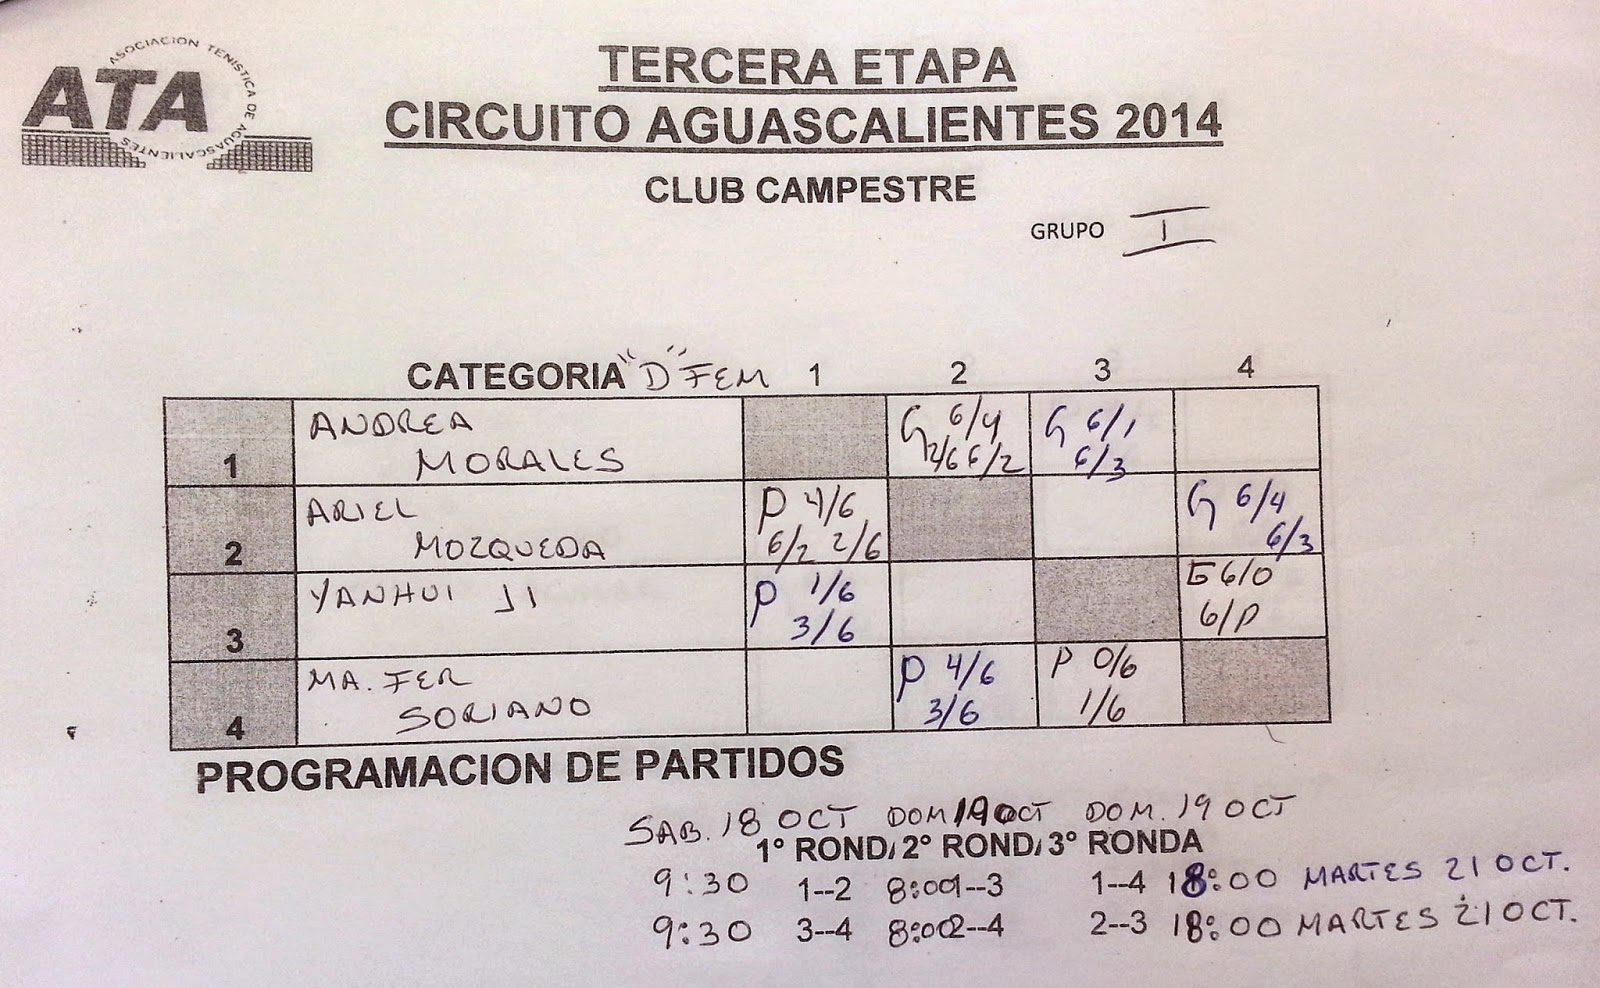 ASOCIACION TENISTICA DE AGUASCALIENTES
ATA
TERCERA ETAPA
CIRCUITO AGUASCALIENTES 2014
CLUB CAMPESTRE
GRUPO I
CATEGORIA "D" FEM 1 2 3 4
1 ANDREA MORALES G 6/4 2/6 6/2 G 6/1 6/3
2 ARIEL MOZQUEDA P 4/6 6/2 2/6 G 6/4 6/3
3 YANHUI JI P 1/6 3/6 G 6/0 6/P
4 MA. FER SORIANO P 4/6 3/6 P 0/6 1/6
PROGRAMACION DE PARTIDOS
SAB. 18 OCT DOM 19 OCT DOM. 19 OCT
1° ROND 2° ROND 3° RONDA
9:30 1--2 8:00 1--3 1--4 18:00 MARTES 21 OCT.
9:30 3--4 8:00 2--4 2--3 18:00 MARTES 21 OCT.